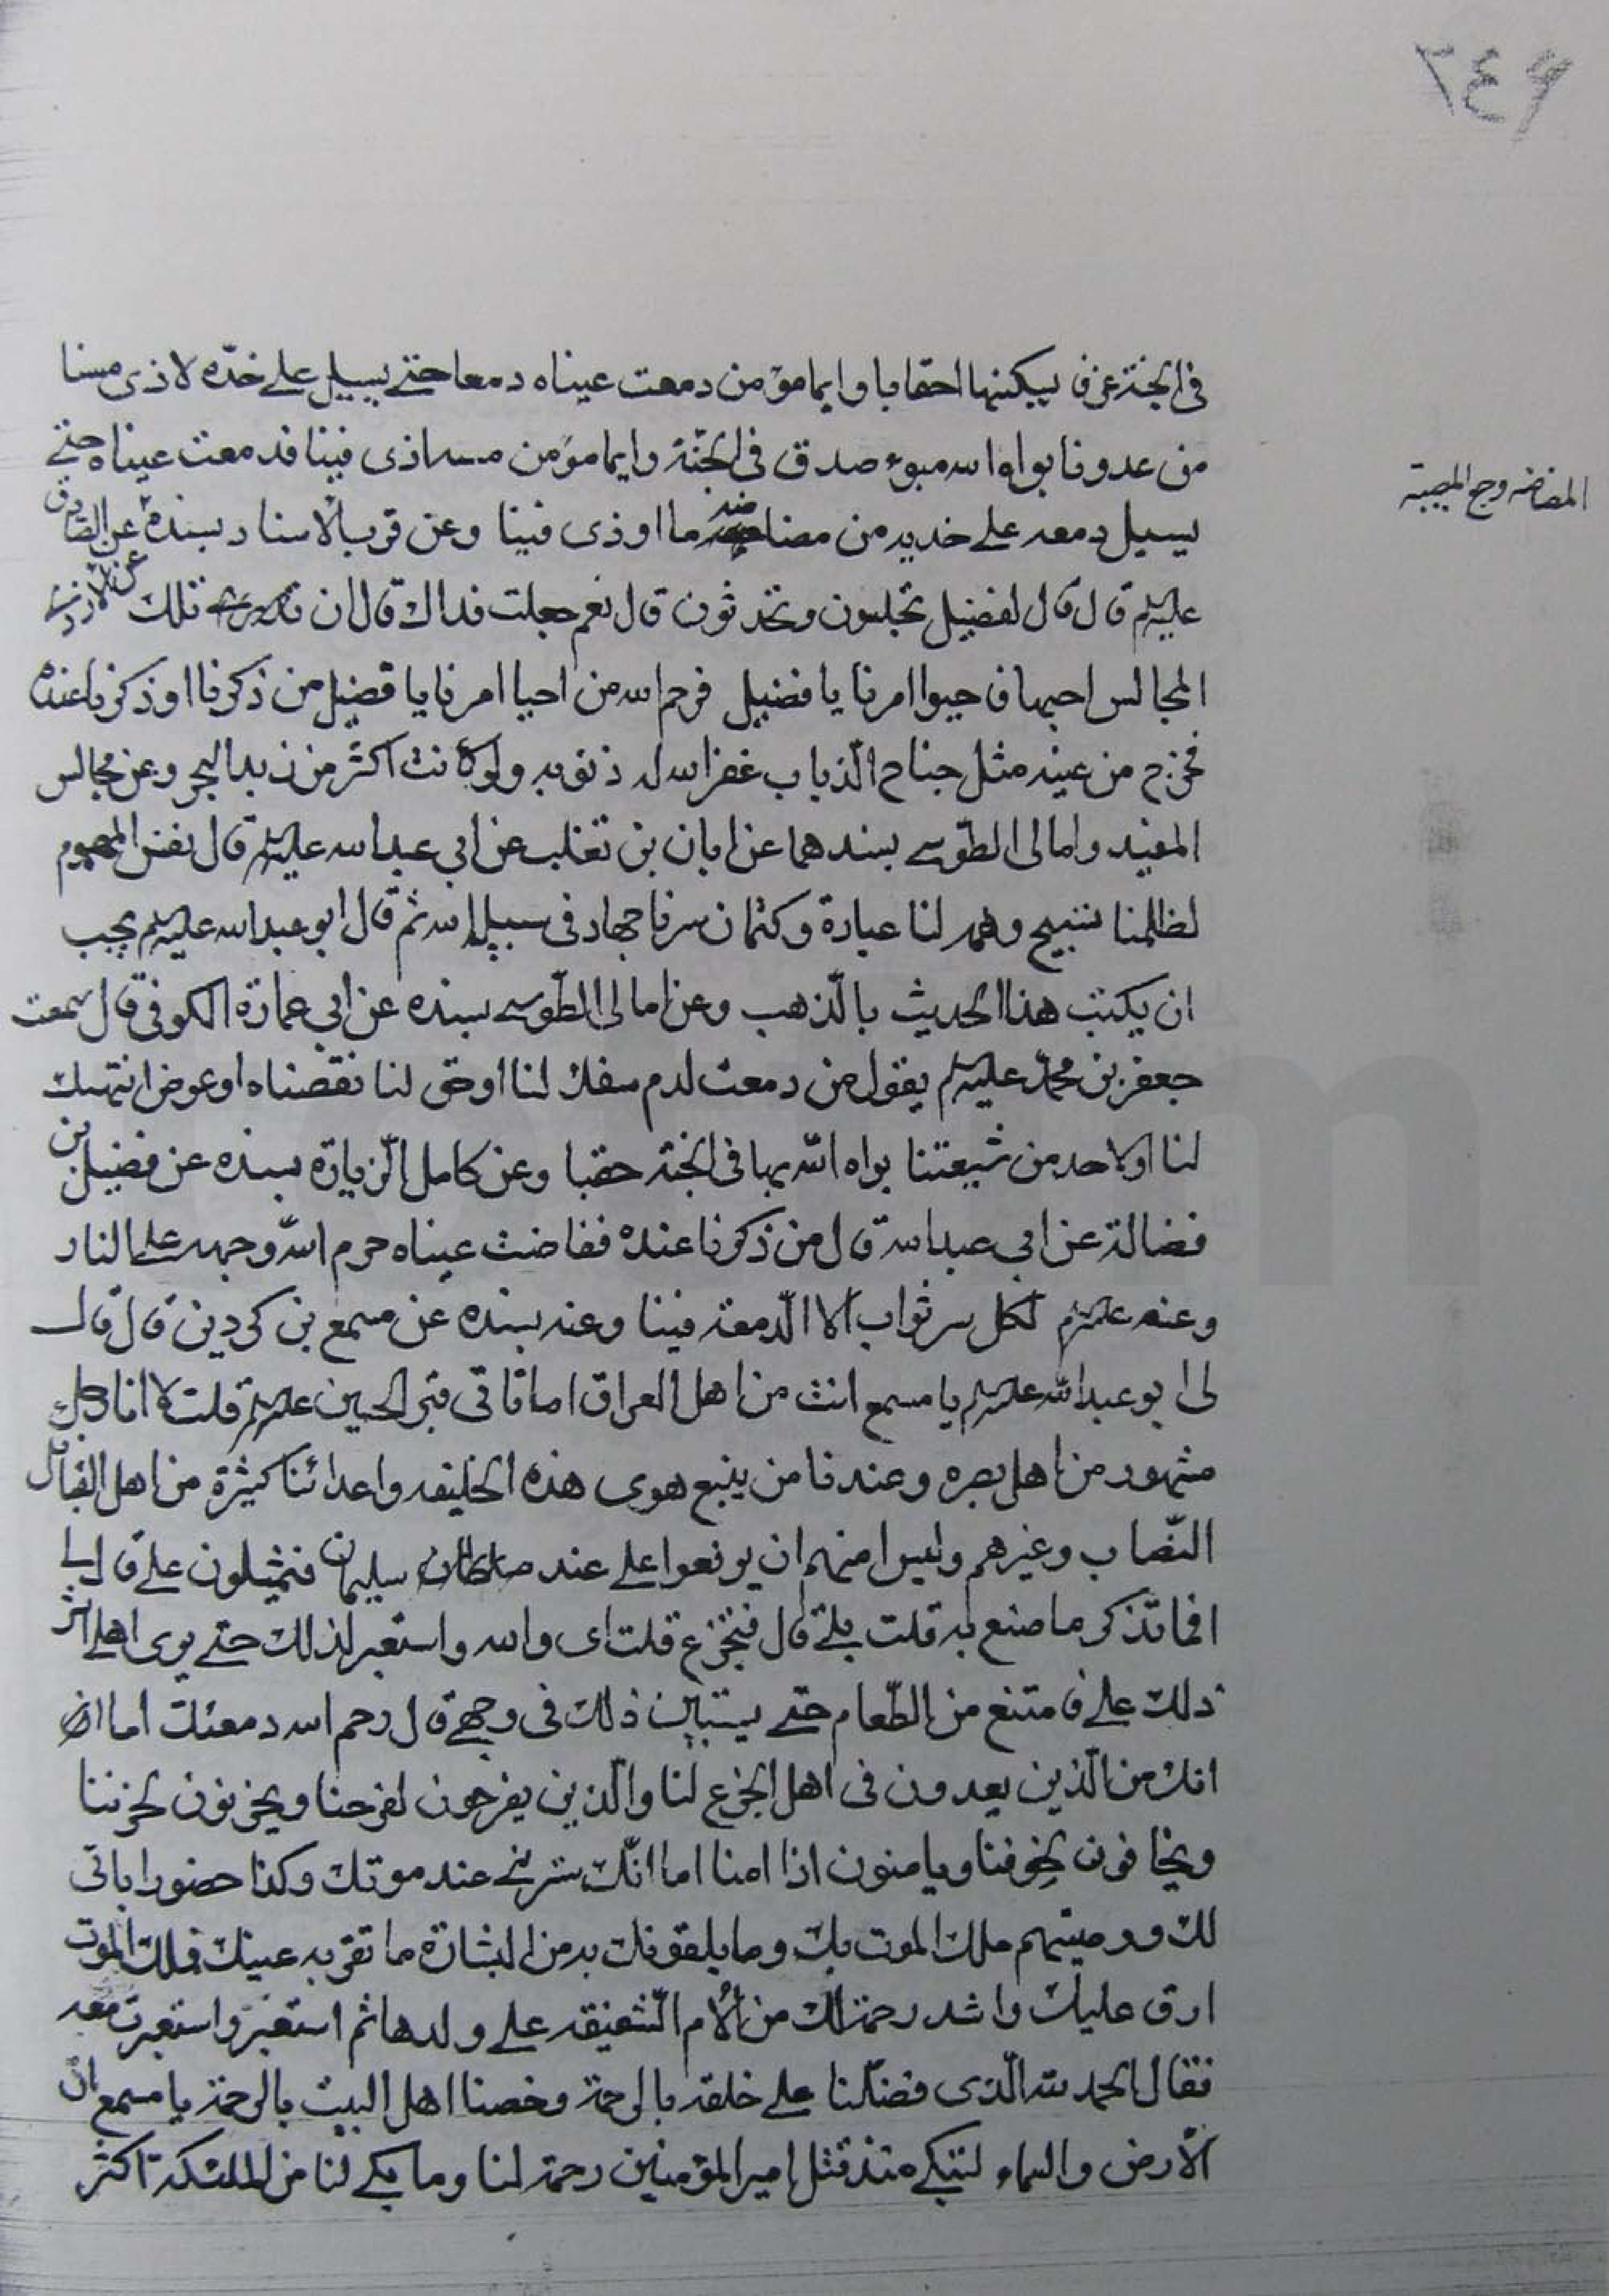 ٢٤٦
فی الجنة غرفا یسکنها احقابا وایما مؤمن دمعت عیناه دمعا حتی یسیل علی خدّه لاذی مسنا
من عدونا بواه الله مبوء صدق فی الجنّة وایما مؤمن مسه اذی فینا فدمعت عیناه حتی
المضاضه وجع المصیبة
یسیل دمعه علی خدیه من مضاضه ما اوذی فینا وعن قرب الاسناد بسنده عن الازدی عن الصادق
علیه السلم قال قال لفضیل تجلسون وتحدثون قال نعم جعلت فداك قال ان تلك
المجالس احبها فاحیوا امرنا یا فضیل فرحم الله من احیا امرنا یا فضیل من ذکرنا او ذکرنا عنده
فخرج من عینه مثل جناح الذّباب غفر الله له ذنوبه ولو کانت اکثر من زبد البحر وعن مجالس
المفید وامالی الطّوسی بسندهما عن ابان بن تغلب عن ابی عبد الله علیه السلم قال نفس المهموم
لظلمنا تسبیح وهمه لنا عبادة وکتمان سرنا جهاد فی سبیل الله ثم قال ابو عبد الله علیه السلم یجب
ان یکتب هذا الحدیث بالذّهب وعن امالی الطّوسی بسنده عن ابی عمارة الکوفی قال سمعت
جعفر بن محمّد علیه السلم یقول من دمعت لدم سفك لنا او حق لنا نقصناه او عرض انتهك
لنا او لاحد من شیعتنا بواه اللّه بها فی الجنة حقبا وعن کامل الزّیارة بسنده عن فضیل بن
فضالة عن ابی عبد الله قال من ذکرنا عنده ففاضت عیناه حرم اللّه وجهه علی النار
وعنه علیه السلم لکل سر ثواب الا الدّمعة فینا وعنه بسنده عن مسمع بن کردین قال قال
لی ابو عبد اللّه علیه السلم یا مسمع انت من اهل العراق اما تاتی قبر الحسین علیه السلم قلت لا انا رجل
مشهور من اهل بصره وعندنا من یتبع هوی هذه الخلیفه واعدائنا کثیرة من اهل القبائل
النّصاب وغیرهم ولیس امنهم ان یرفعوا علی عند سلیمان فیمثلون علی قال لی
افما تذکر ما صنع به قلت بلی قال فتجزع قلت ای والله واستعبر لذلك حتی یری اهلی اثر
ذلك علی فامتنع من الطّعام حتی یستبین ذلك فی وجهی قال رحم الله دمعتك اما
انك من الّذین یعدون فی اهل الجزع لنا والّذین یفرحون لفرحنا ویحزنون لحزننا
ویخافون لخوفنا ویامنون اذا امنا اما انّك سترنی عند موتك وکذا حضور ابائی
لك ووصیتهم ملك الموت بك وما یلقونك به من البشارة ما تقر به عینك فملك الموت
ارق علیك واشد رحمة لك من الام الشّفیقه علی ولدها ثم استعبر واستعبرت معه
فقال الحمد للّه الّذی فضّلنا علی خلقه بالرحمة وخصنا اهل البیت بالرحمة یا مسمع ان
الأرض والسماء لتبکی منذ قتل امیر المؤمنین رحمة لنا وما بکی لنا من الملئکة اکثر